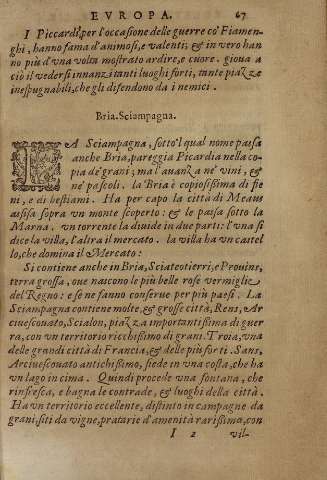 EVROPA. 67
I Piccardi, per l'occasione delle guerre co' Fiamen-
ghi, hanno fama d'animosi, e valenti; & in vero han
no più d'vna volta mostrato ardire, e cuore. gioua a
ciò il vedersi innanzi tanti luoghi forti, tante piazze
inespugnabili, che gli difendono da i nemici.
Bria. Sciampagna.
LA Sciampagna, sotto'l qual nome passa
anche Bria, pareggia Picardia nella co-
pia de' grani; ma l'auanza ne' vini, &
ne' pascoli. la Bria è copiosissima di fie
ni, e di bestiami. Ha per capo la città di Meaus
assisa sopra vn monte scoperto: & le passa sotto la
Marna. vn torrente la diuide in due parti: l'vna si
dice la villa, l'altra il mercato. la villa ha vn castel
lo, che domina il Mercato:
Si contiene anche in Bria, Sciateotierri, e Prouins,
terra grossa, oue nascono le più belle rose vermiglie
del Regno: e se ne fanno conserue per più paesi. La
Sciampagna contiene molte, & grosse città, Rens, Ar
ciuescouato, Scialon, piazza importantissima di guer
ra, con vn territorio ricchissimo di grani. Troia, vna
delle grandi città di Francia, & delle più forti. Sans,
Arciuescouato antichissimo, siede in vna costa, che ha
vn lago in cima. Quindi procede vna fontana, che
rinfresca, e bagna le contrade, & luoghi della città.
Ha vn territorio eccellente, distinto in campagne da
grani, siti da vigne, pratarie d'amenità rarissima, con
I 2 vil-